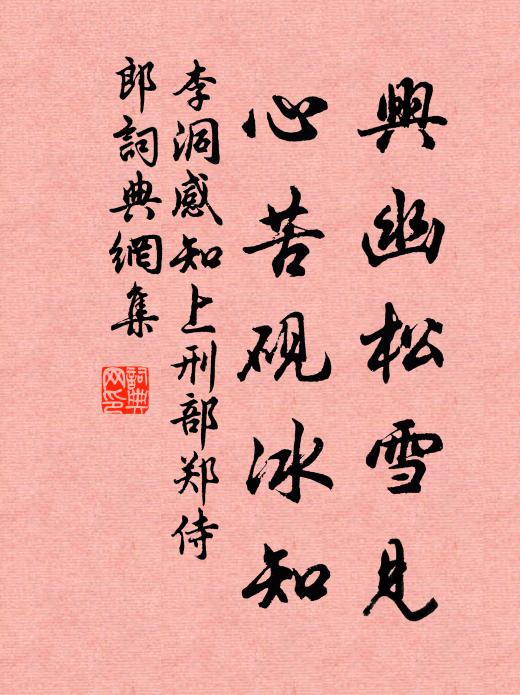 興幽松雪見
心苦硯冰知
李洞感知上刑部郑侍
郎詞典網集
詞典網印